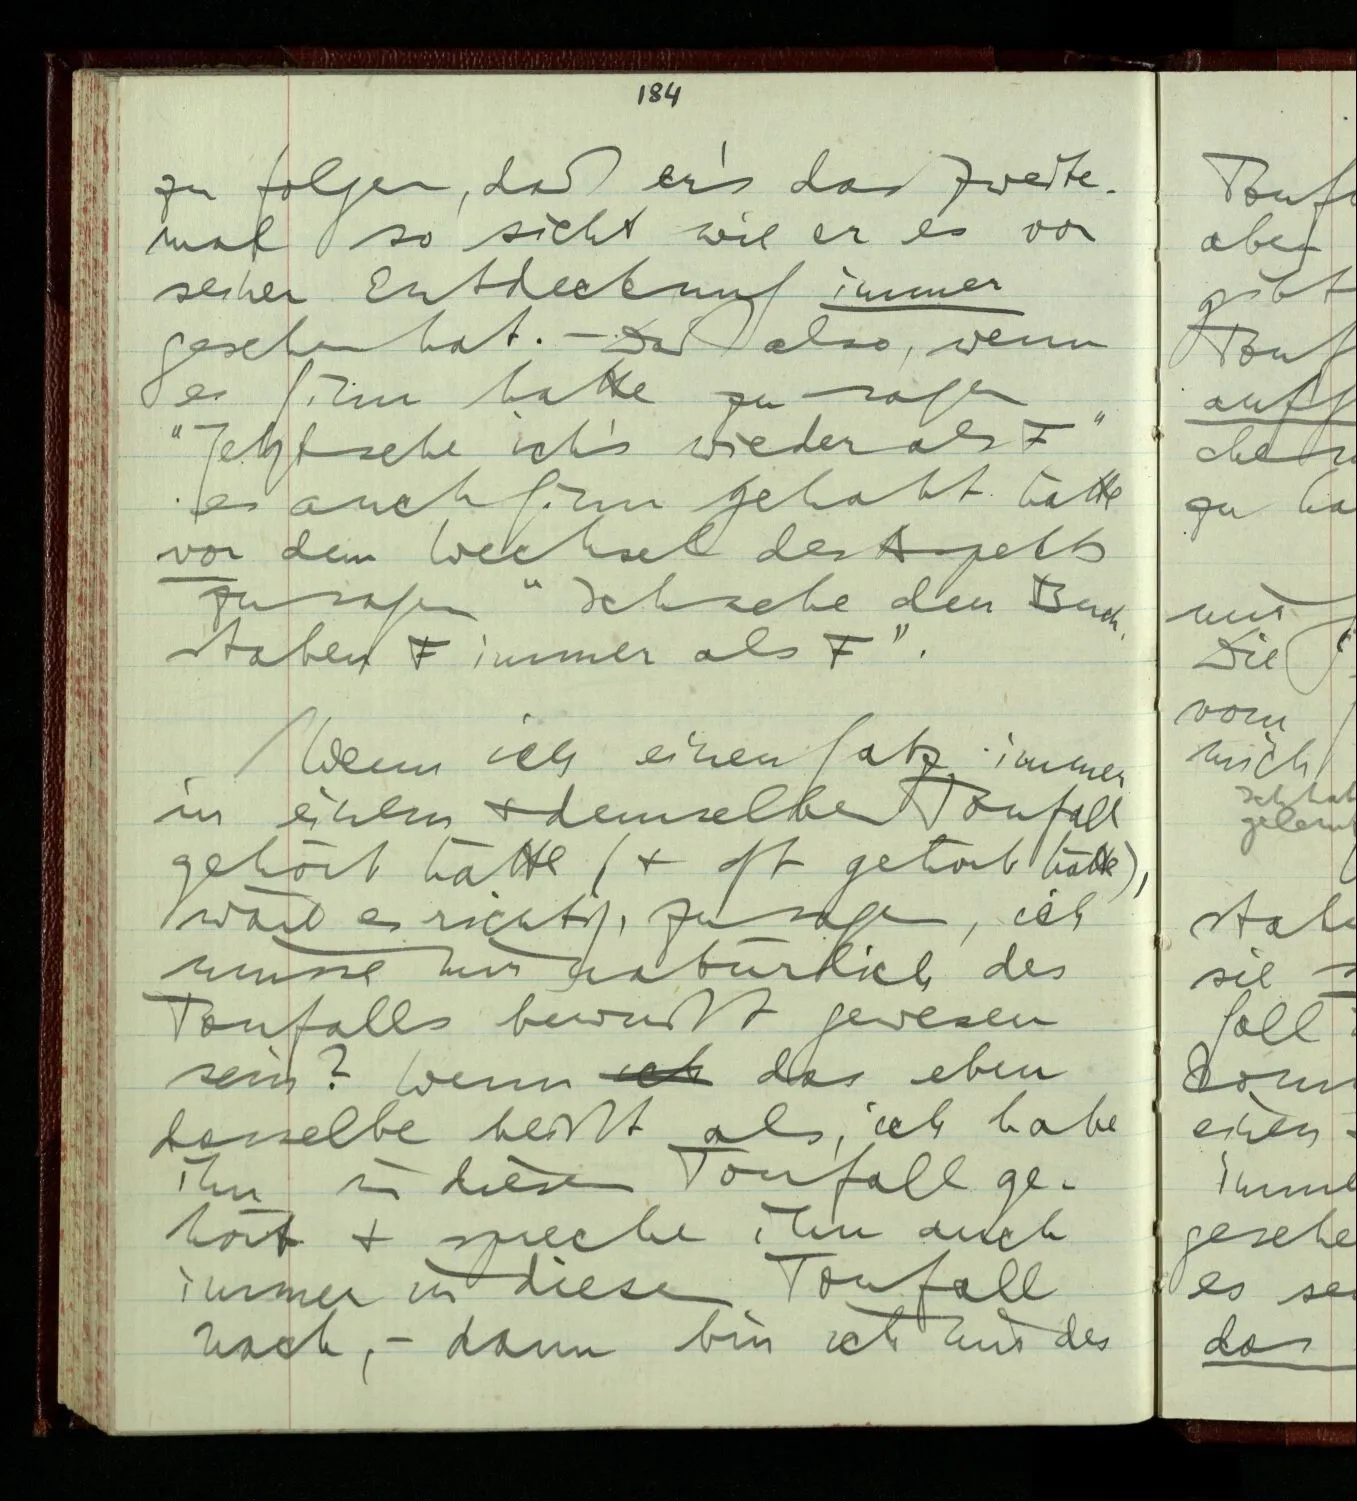 184
zu folgen, daß er's das zweite-
mal so sieht wie er es vor
seiner Entdeckung immer
gesehen hat. – Daß also, wenn
es Sinn hätte zu sagen
"Jetzt sehe ich's wieder als F"
es auch Sinn gehabt hätte
vor dem Wechsel des Aspekts
zu sagen "Ich sehe den Buch-
staben F immer als F".
Wenn ich einen Satz immer
in einem + demselben Tonfall
gehört hätte (+ oft gehört hätte),
wäre es richtig, zu sagen, ich
müsse mir natürlich des
Tonfalls bewußt gewesen
sein? Wenn ich das eben
dasselbe heißt als, ich habe
ihn in diesem Tonfall ge-
hört + spreche ihn auch
immer in diesem Tonfall
nach, – dann bin ich mir des
Tonf
aber
gibt
Tonf
auff
che
zu ha
mir
Die
vom
mich
Ich hab
gelern
sie
soll
einen
imme
gesehe
es sei
das